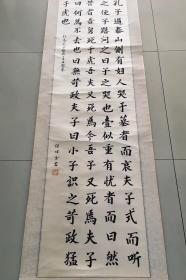 孔子過泰山側有婦人哭于墓者而哀夫子式而听
之使子路问之曰子之哭也壹似重有忧者而曰然
昔者吾舅死于虎吾夫又死焉今吾子又死焉夫子
曰何焉不去也曰無苛政夫子曰小子識之苛政猛
于虎也